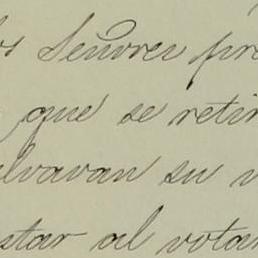 os Señores pre
que se retir
alvavan su v
star al votar